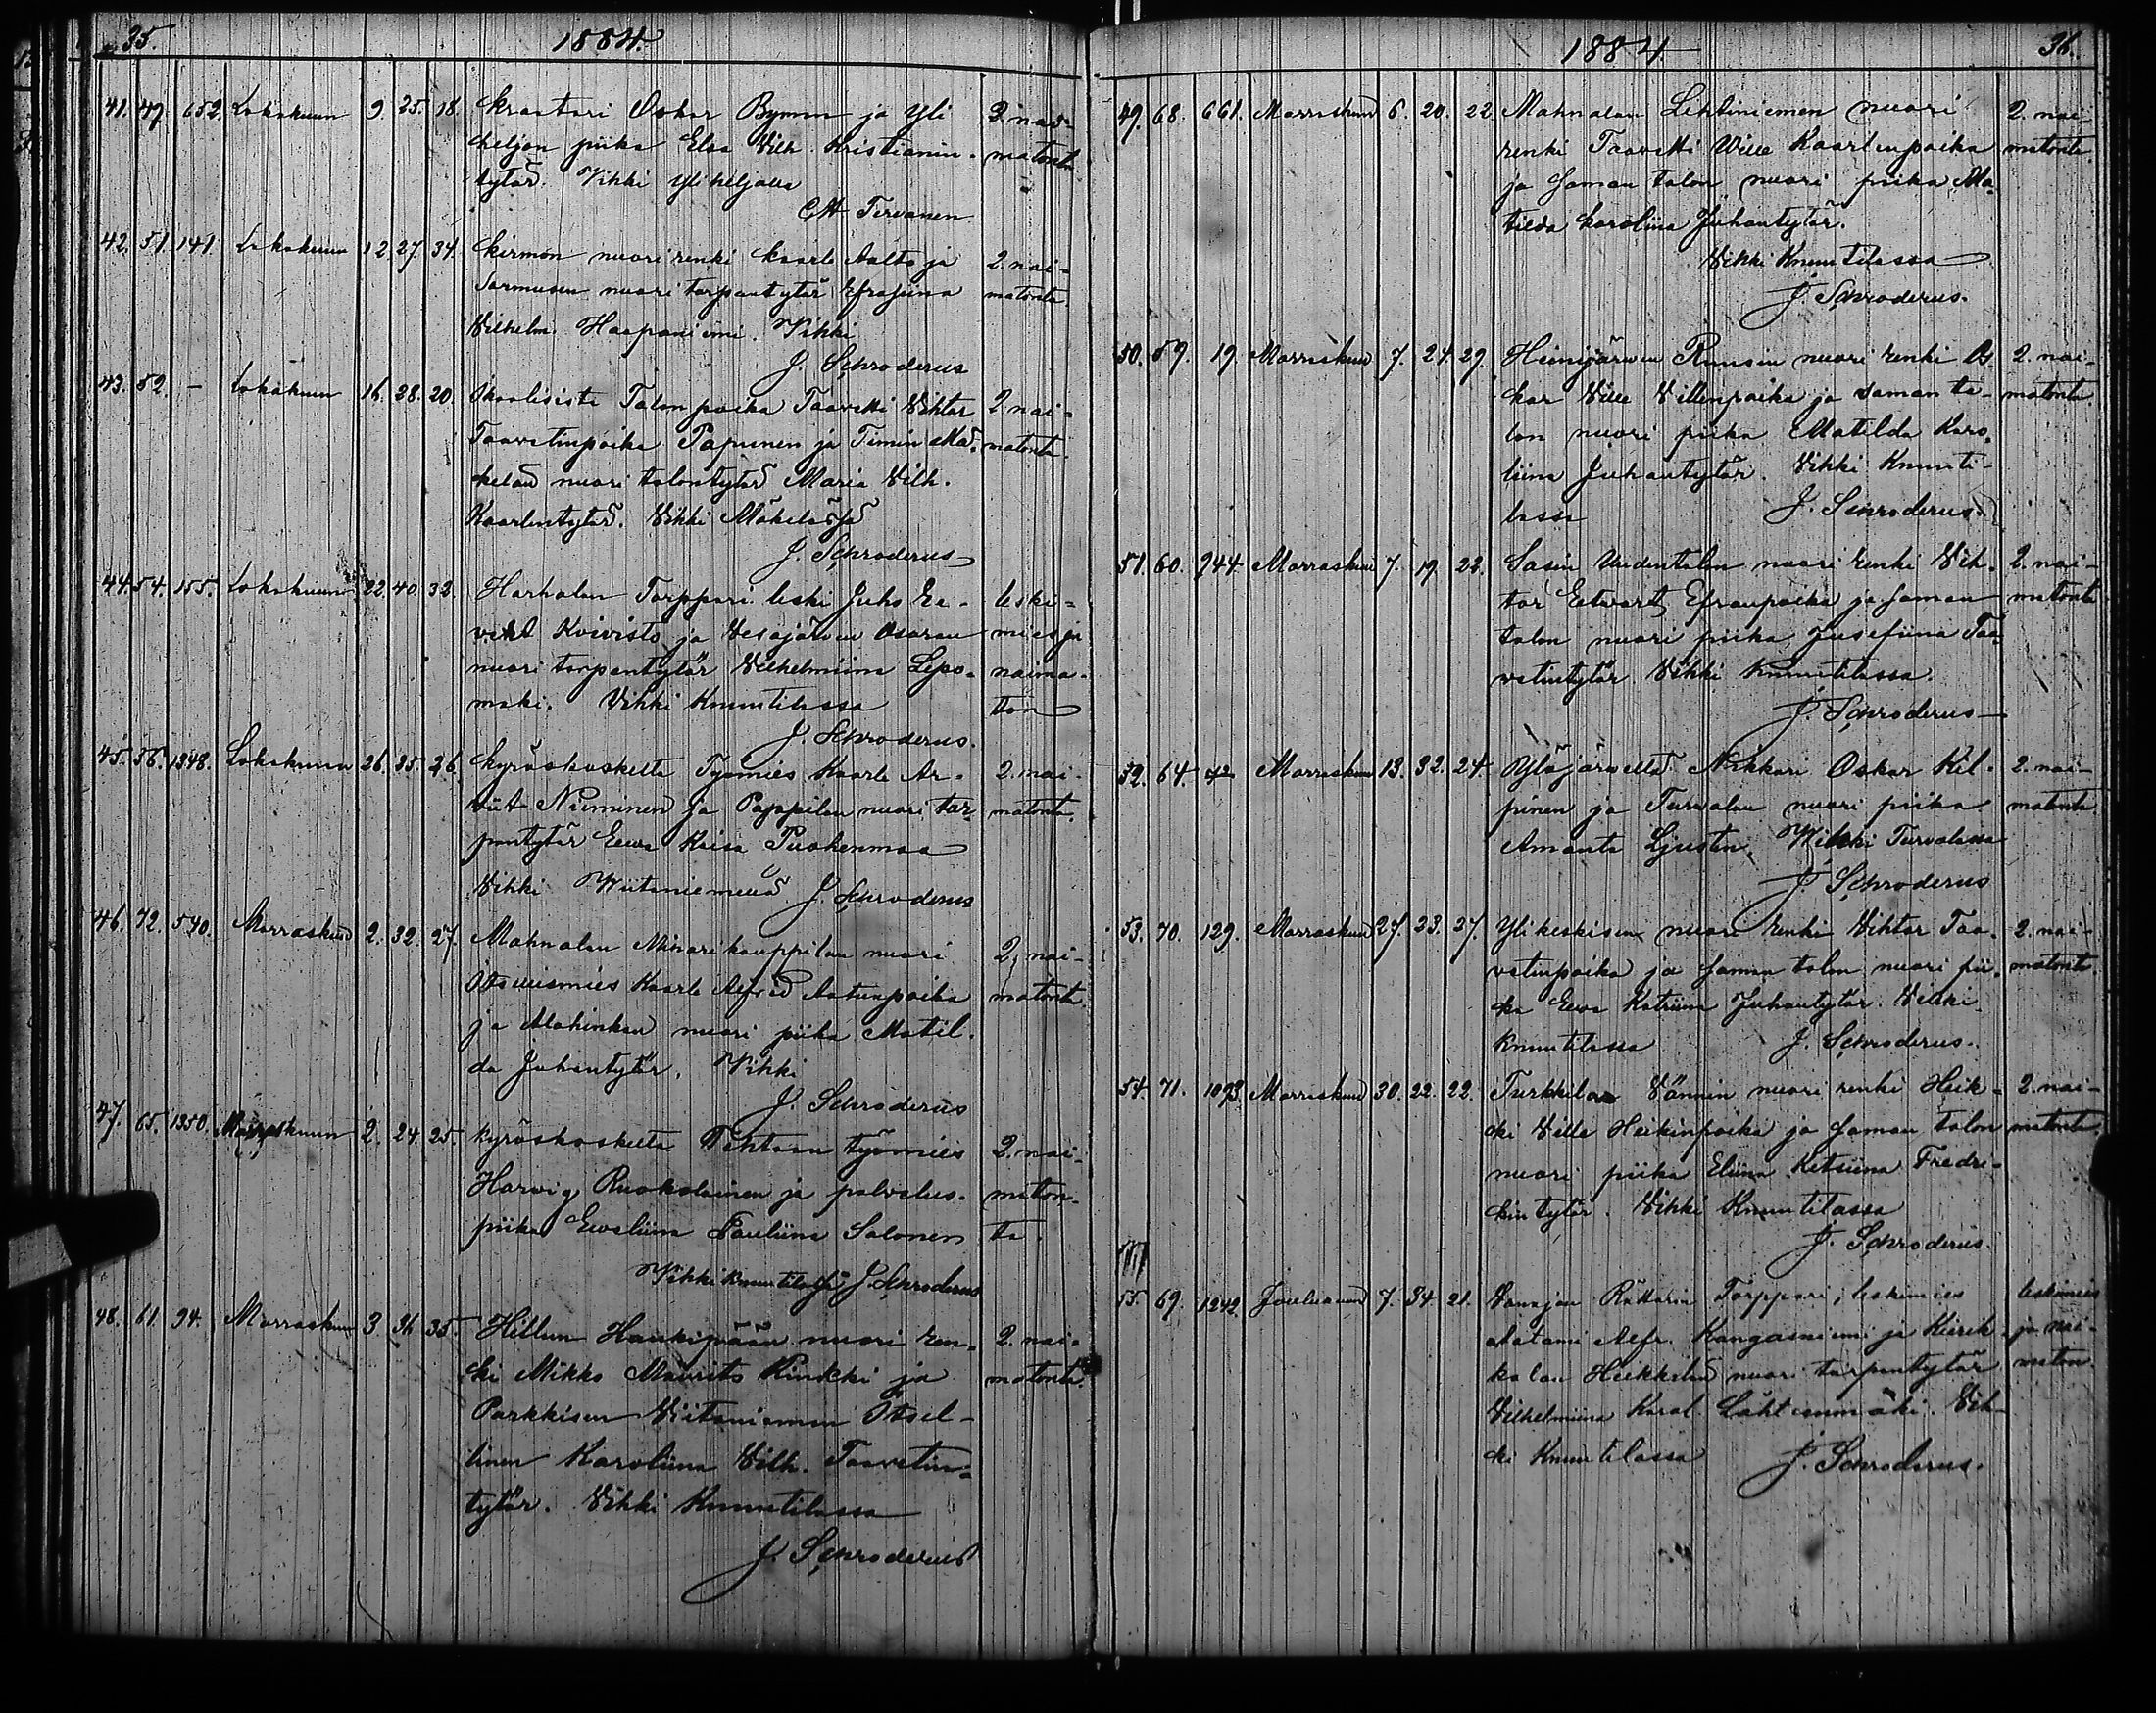 35. 1884.
41. 47. 652. Lokakuun 9. 25. 18. Kraatari Oskar Byman ja Yli 2. nai-
keljon piika Elsa Vilh. Kristianin- matonta
tytär. Vihki Ylikeljalla
Tervanen
42. 51. 141. Lokakuun 12. 27. 34. Kirmon nuori renki Kaarle Aalto ja 2. nai-
Sarmusen nuori torpantytär Efrosiina matonta.
Vilhelm. Haapaniemi. Vihki
J. Schroderus
43. 52. – Lokakuun 16. 28. 20. Talonpoika Taavetti Vihtor 2. nai-
Taavetinpoika Papunen ja Timin Mä- matonta.
kelän nuori talontytär Maria Vilh.
Kaarlentytär. Vihki Mäkelässä
J. Schroderus
44. 54. 155. Lokakuun 22. 40. 32. Harhalan Torppari leski Juho Ee- leski-
vert Koivisto ja Vesajärven Osaran mies ja
nuori torpantytär Vilhelmiina Lepo- naima-
mäki. Vihki Knuutilassa ton
J. Schroderus.
45. 56. 1348. Lokakuun 26. 35. 26. Kyröskoskelta Työmies Kaarle Ar- 2. nai-
viit Nieminen ja Pappilan nuori tor- matonta.
pantytär Eeva Kaisa Puokenmaa
Vihki Wiitaniemellä J. Schroderus
46. 72. 540. Marraskuun 2. 32. 27. Mahnalan Minarikauppilan nuori 2. nai-
Itsellismies Kaarle Alfred Aatunpoika matonta.
ja Mahinkan nuori piika Matil-
da Juhantytär. Vihki
J. Schroderus
47. 65. 1350. Marraskuun 2. 24. 25. Kyröskoskelta Tehtaan työmies 2. nai-
Harvig Ruokolainen ja palvelus- maton-
piika Evaliina Pauliina Salonen ta.
Vihki Knuutilassa J. Schroderus
48. 61. 94. Marraskuun 3. 26 35. Hillun Haukipään nuori ren- 2. nai-
ki Mikko Maurits Kinkki ja matonta.
Parkkisen Viitaniemen Itsel-
linen Karoliina Vilh. Taavetin-
tytär. Vihki Knuutilassa
J. Schroderus
1884 36.
49. 68. 661. Marraskuun 6. 20. 22 Mahnalan Lehtiniemen nuori 2. nai-
renki Taavetti Wille Kaarlenpoika matonta.
ja saman talon nuori piika Ma-
tilda Karoliina Juhantytär.
Vihki Knuutilassa
J. Schroderus.
50. 59. 19. Marraskuun 7. 24. 29. Heinijärven Runsin nuori renki Os- 2. nai-
kar Ville Villenpoika ja saman ta- matonta.
lon nuori piika Matilda Karo-
liina Juhantytär. Vihki Knuuti-
lassa J. Schroderus.
51. 60. 244. Marraskuun 7. 19. 22. Sasin Uudentalon nuori renki Vih- 2. nai-
tor Eetvart Efranpoika ja saman matonta
talon nuori piika Jusefiina Taa-
vetintytär Vihki Knuutilassa.
J. Schroderus
52. 64. Marraskuun 13. 32. 24. Ylöjärveltä Nikkari Oskar Kil- 2. nai-
pinen ja Turvalan nuori piika matonta.
Amanta Ljustin. Wihki Turvalassa
J. Schroderus
53. 70. 129. Marraskuun 27. 23. 27. Ylikeskisen nuori renki Vihtor Taa- 2. nai-
vetinpoika ja saman talon nuori pii- matonta
ka Eeva Katriina Juhantytär. Vihki
Knuutilassa J. Schroderus.
54. 71. 1093. Marraskuun 30. 22. 22. Turkkilan Vännin nuori renki Heik- 2. nai-
ki Ville Heikinpoika ja saman talon matonta.
nuori piika Eliina Fredri-
kintytär. Vihki Knuutilassa
J. Schroderus.
55. 69. 1242. Joulukuun 7. 34. 21. Vanajan Rättärin Torppari, leskimies leskimies
Aatami Alfr. Kangasniemi ja Kierik- ja nai-
kalan Heikkilän nuori torpantytär maton.
Vilhelmiina Karol. Lähteenmäki. Vih-
ki Knuutilassa J. Schroderus.